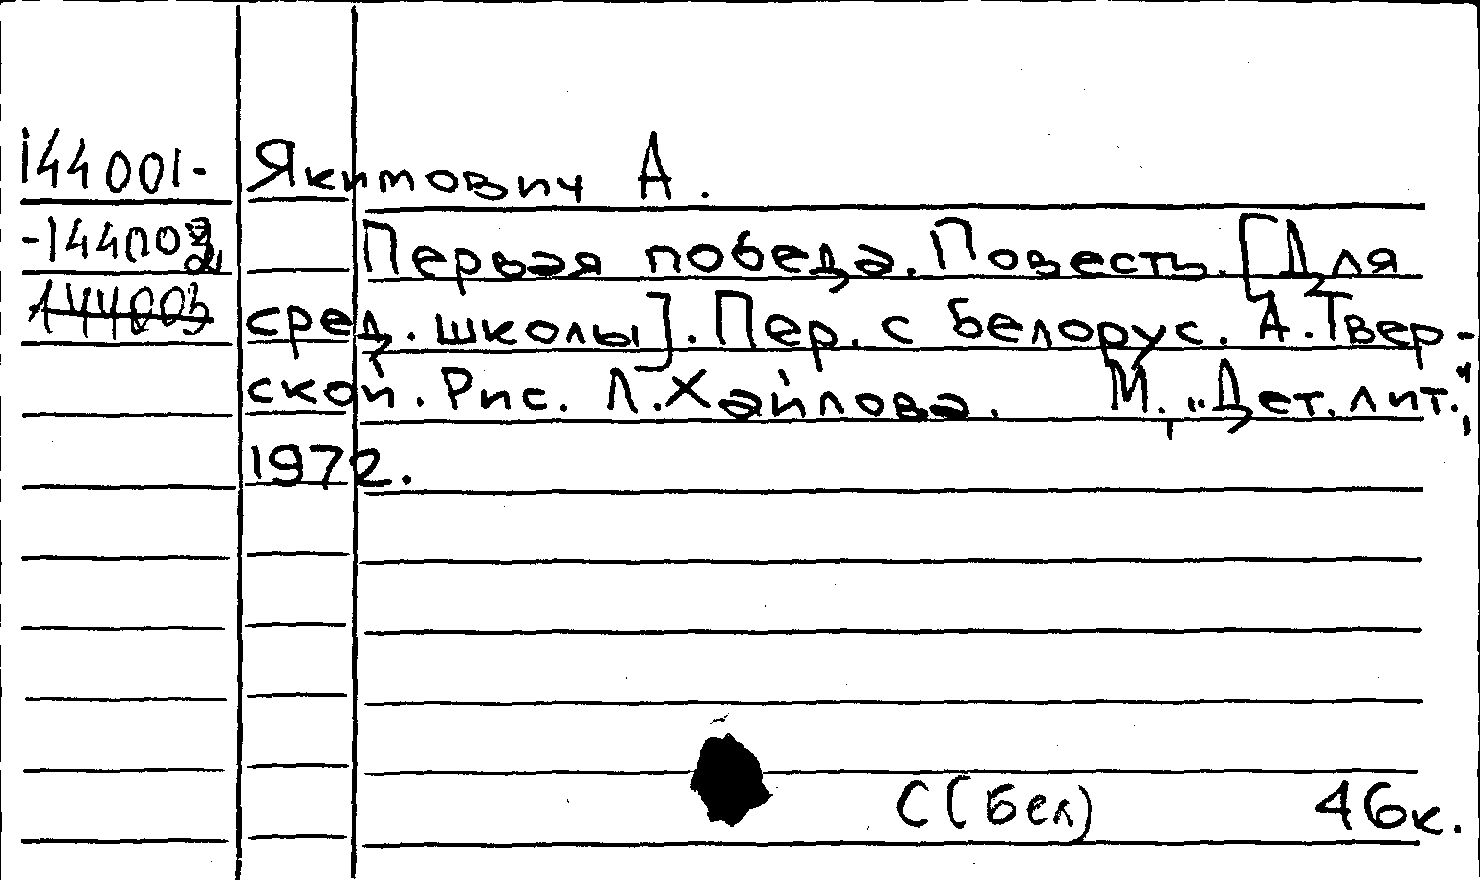 144001- Якимович А.
-144002 Первая победа. Повесть. [Для
144003 сред. школы]. Пер. с белорус. А. Твер-
ской. Рис. Л. Хайлова. М., „Дет. лит.",
1972.
С(Бел) 46к.